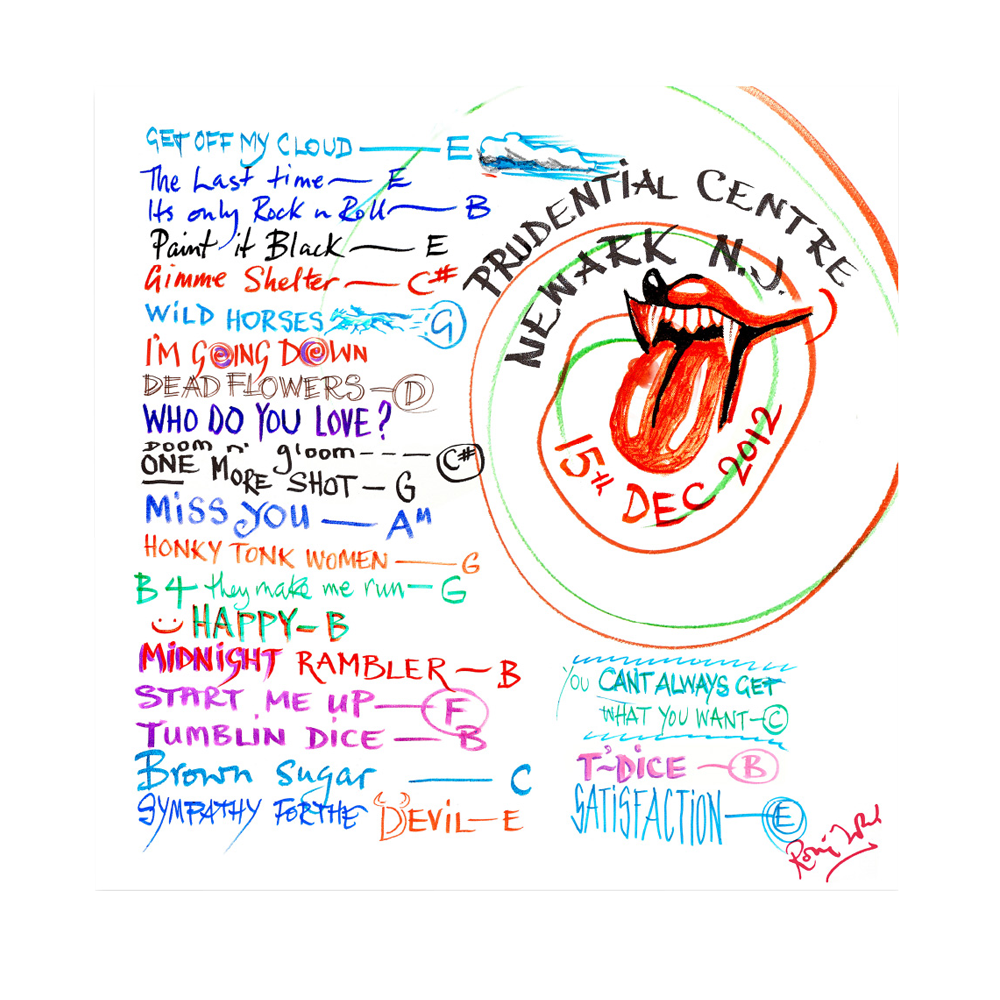 GET OFF MY CLOUD — E
The Last time — E
Its only Rock n Roll — B
Paint it Black — E
Gimme Shelter — C#
WiLD HORSES G
I'M GOING DOWN
DEAD FLOWERS — D
WHO DO YOU LOVE?
DOOM n' gloom --- C#
ONE MORE SHOT — G
Miss you — Am
HONKY TONK WOMEN — G
B4 they make me run — G
HAPPY — B
MiDNiGHT RAMBLER — B
START ME UP — F
TUMBLiN DiCE — B
Brown Sugar — C
SYMPATHY FOR THE DEViL — E
PRUDENTiAL CENTRE
NEWARK N.J.
15th DEC 2012
YOU CANT ALWAYS GET
WHAT YOU WANT — C
T~DiCE — B
SATiSFACTiON — E